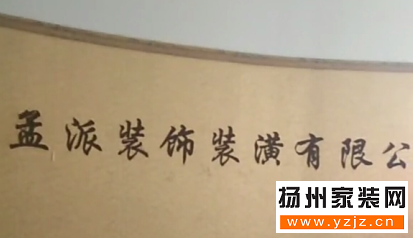 孟派装饰装潢有限公
扬州家装网
www.yzjz.cn